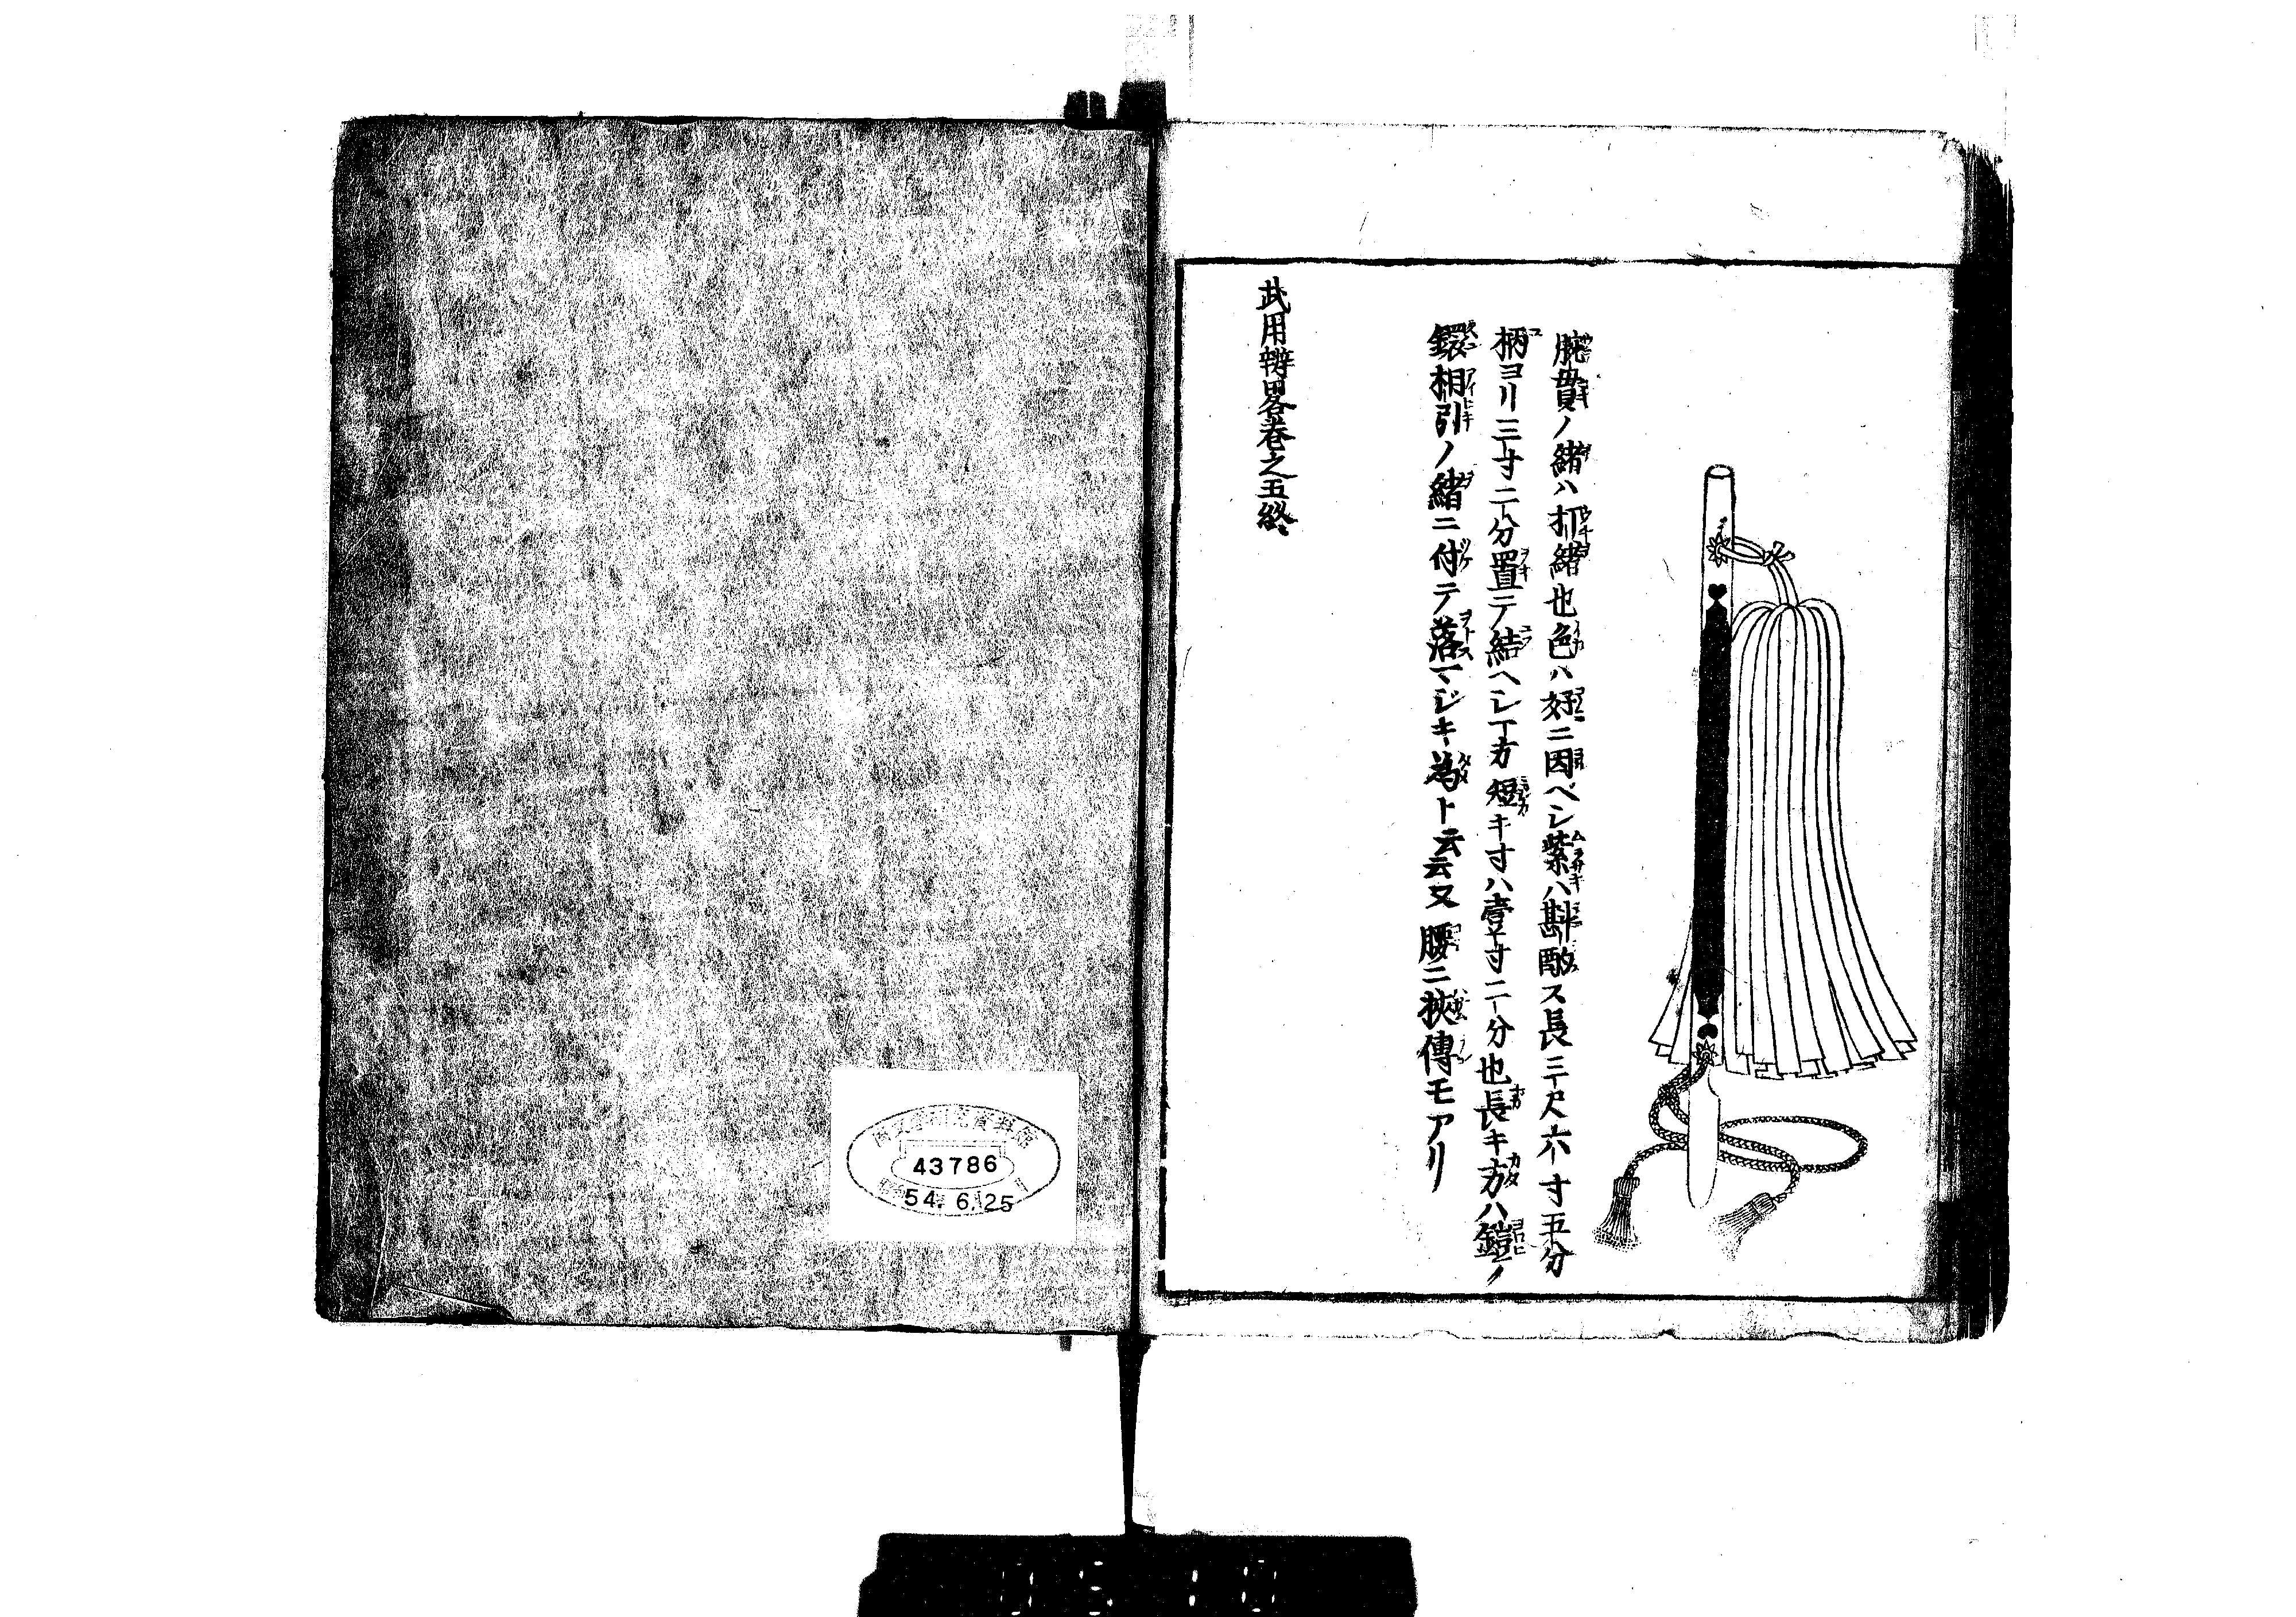 腕貫ノ緒ハ打緒也色ハ好ニ因ベシ紫ハ斟酌ス長三尺六寸五分
柄ヨリ三寸二分置テ結ヘシ一方短キ寸ハ壹寸二分也長キ方ハ鎧ノ
鐶相引ノ緒ニ付テ落マジキ為ト云云又腰ニ挾傳モアリ
武用辨畧卷之五終
国文学研究資料館
43786
54. 6. 25